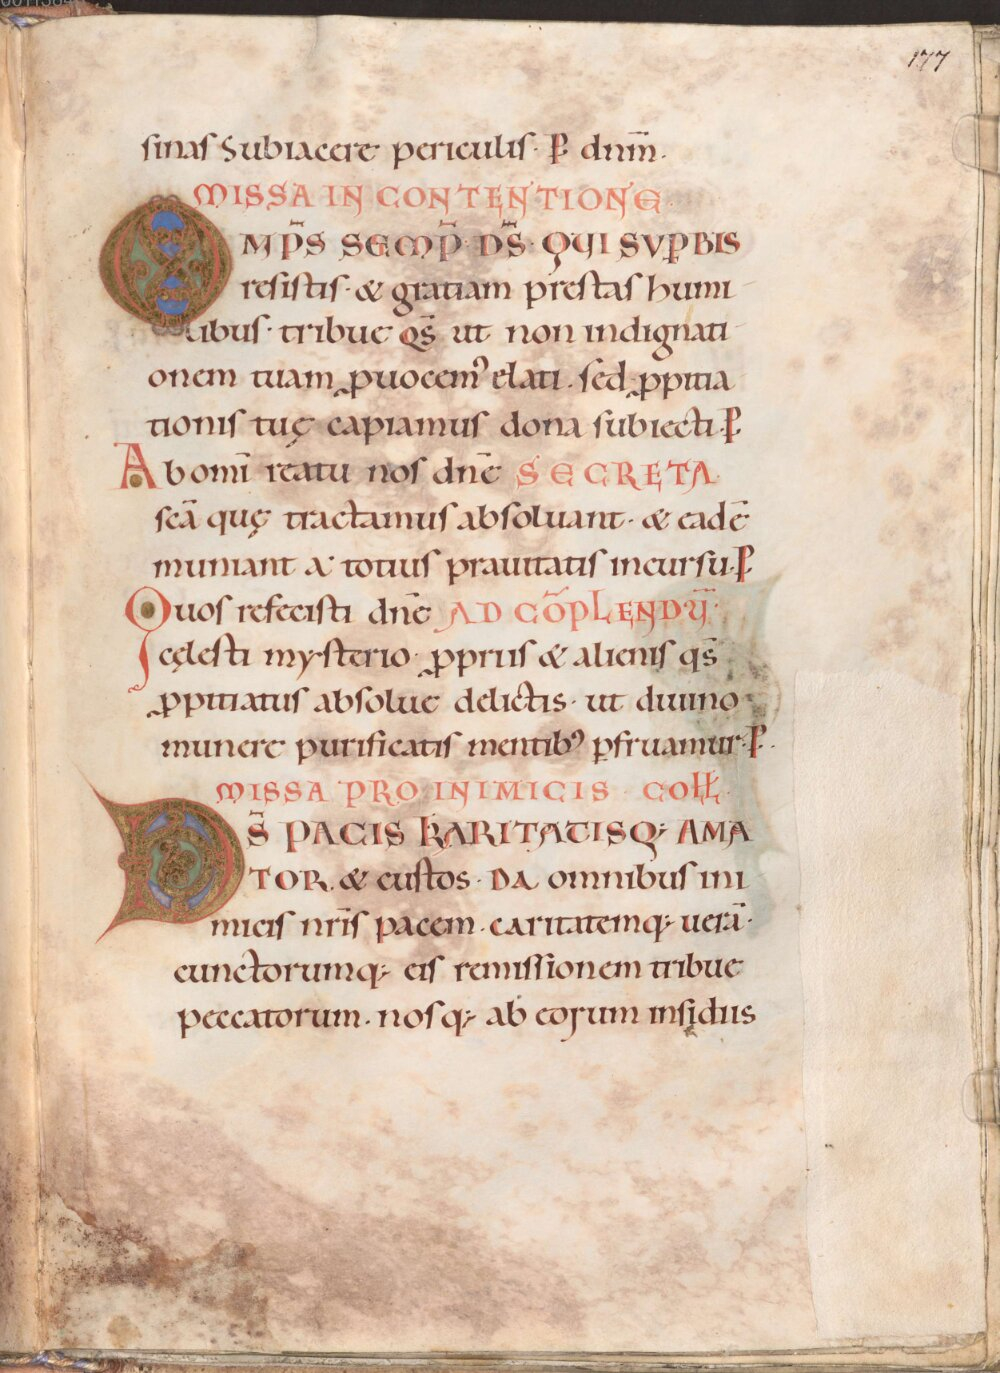 177
sinas Subiacere periculis· P̄ dn̄m·
MISSA IN CONTENTIONE
OMP̄S SEMP̄ D̄S· QUI SVPBIS
resistis· & gratiam prestas humi
libus· tribue qs̄ ut non indignati
onem tuam ꝓuocemꝰ elati· sed ꝓpitia
tionis tuę capiamus dona subiecti· P̄
Ab omī reatu nos dn̄e SECRETA·
scā quę tractamus absoluant· & eadē
muniant a totius prauitatis incursu· P̄
Quos refecisti dn̄e AD CŌPLENDŪ·
cęlesti mysterio· ꝓpriis & alienis qs̄
ꝓpitiatus absolue delictis· ut diuino
munere purificatis mentibꝰ ꝑfruamur· P̄·
MISSA PRO INIMICIS· COLL̄·
DS̄ PACIS KARITATISQ; AMA
TOR· & custos· DA omnibus ini
micis nr̄is pacem· caritatemq; uerā·
cunctorumq; eis remissionem tribue
peccatorum· nosq; ab eorum insidiis